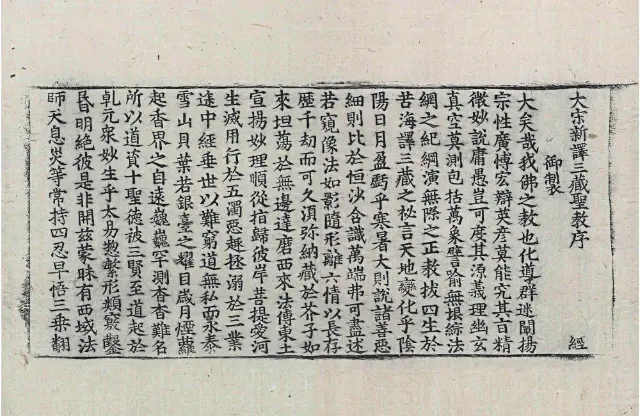 大宋新譯三藏聖教序
御製
經
大矣哉我佛之教也化導群迷闡揚
宗性廣博宏辯英彦莫能究其旨精
微妙說庸愚豈可度其源義理幽玄
真空莫測包括萬象譬喻無垠綜法
網之紀綱演無際之正教拔四生於
苦海譯三藏之祕言天地變化乎陰
陽日月盈虧乎寒暑大則說諸善惡
細則比於恒沙含識萬端弗可盡述
若窺像法如影隨形離六情以長存
歷千劫而可久湏弥納藏於芥子如
來坦蕩於無邊達磨西來法傳東土
宣揚妙理順從指歸彼岸菩提愛河
生滅用行於五濁惡趣拯溺於三業
途中經垂世以難窮道無私而永泰
雪山貝葉若銀臺之耀目歲月煙蘿
起香界之自遠巍巍罕測杳杳難名
所以道資十聖德被三賢至道起於
乹元衆妙生乎太易惣繁形類竅鑿
昏明絕彼是非開茲蒙昧有西域法
師天息灾等常持四忍早悟三乘翻